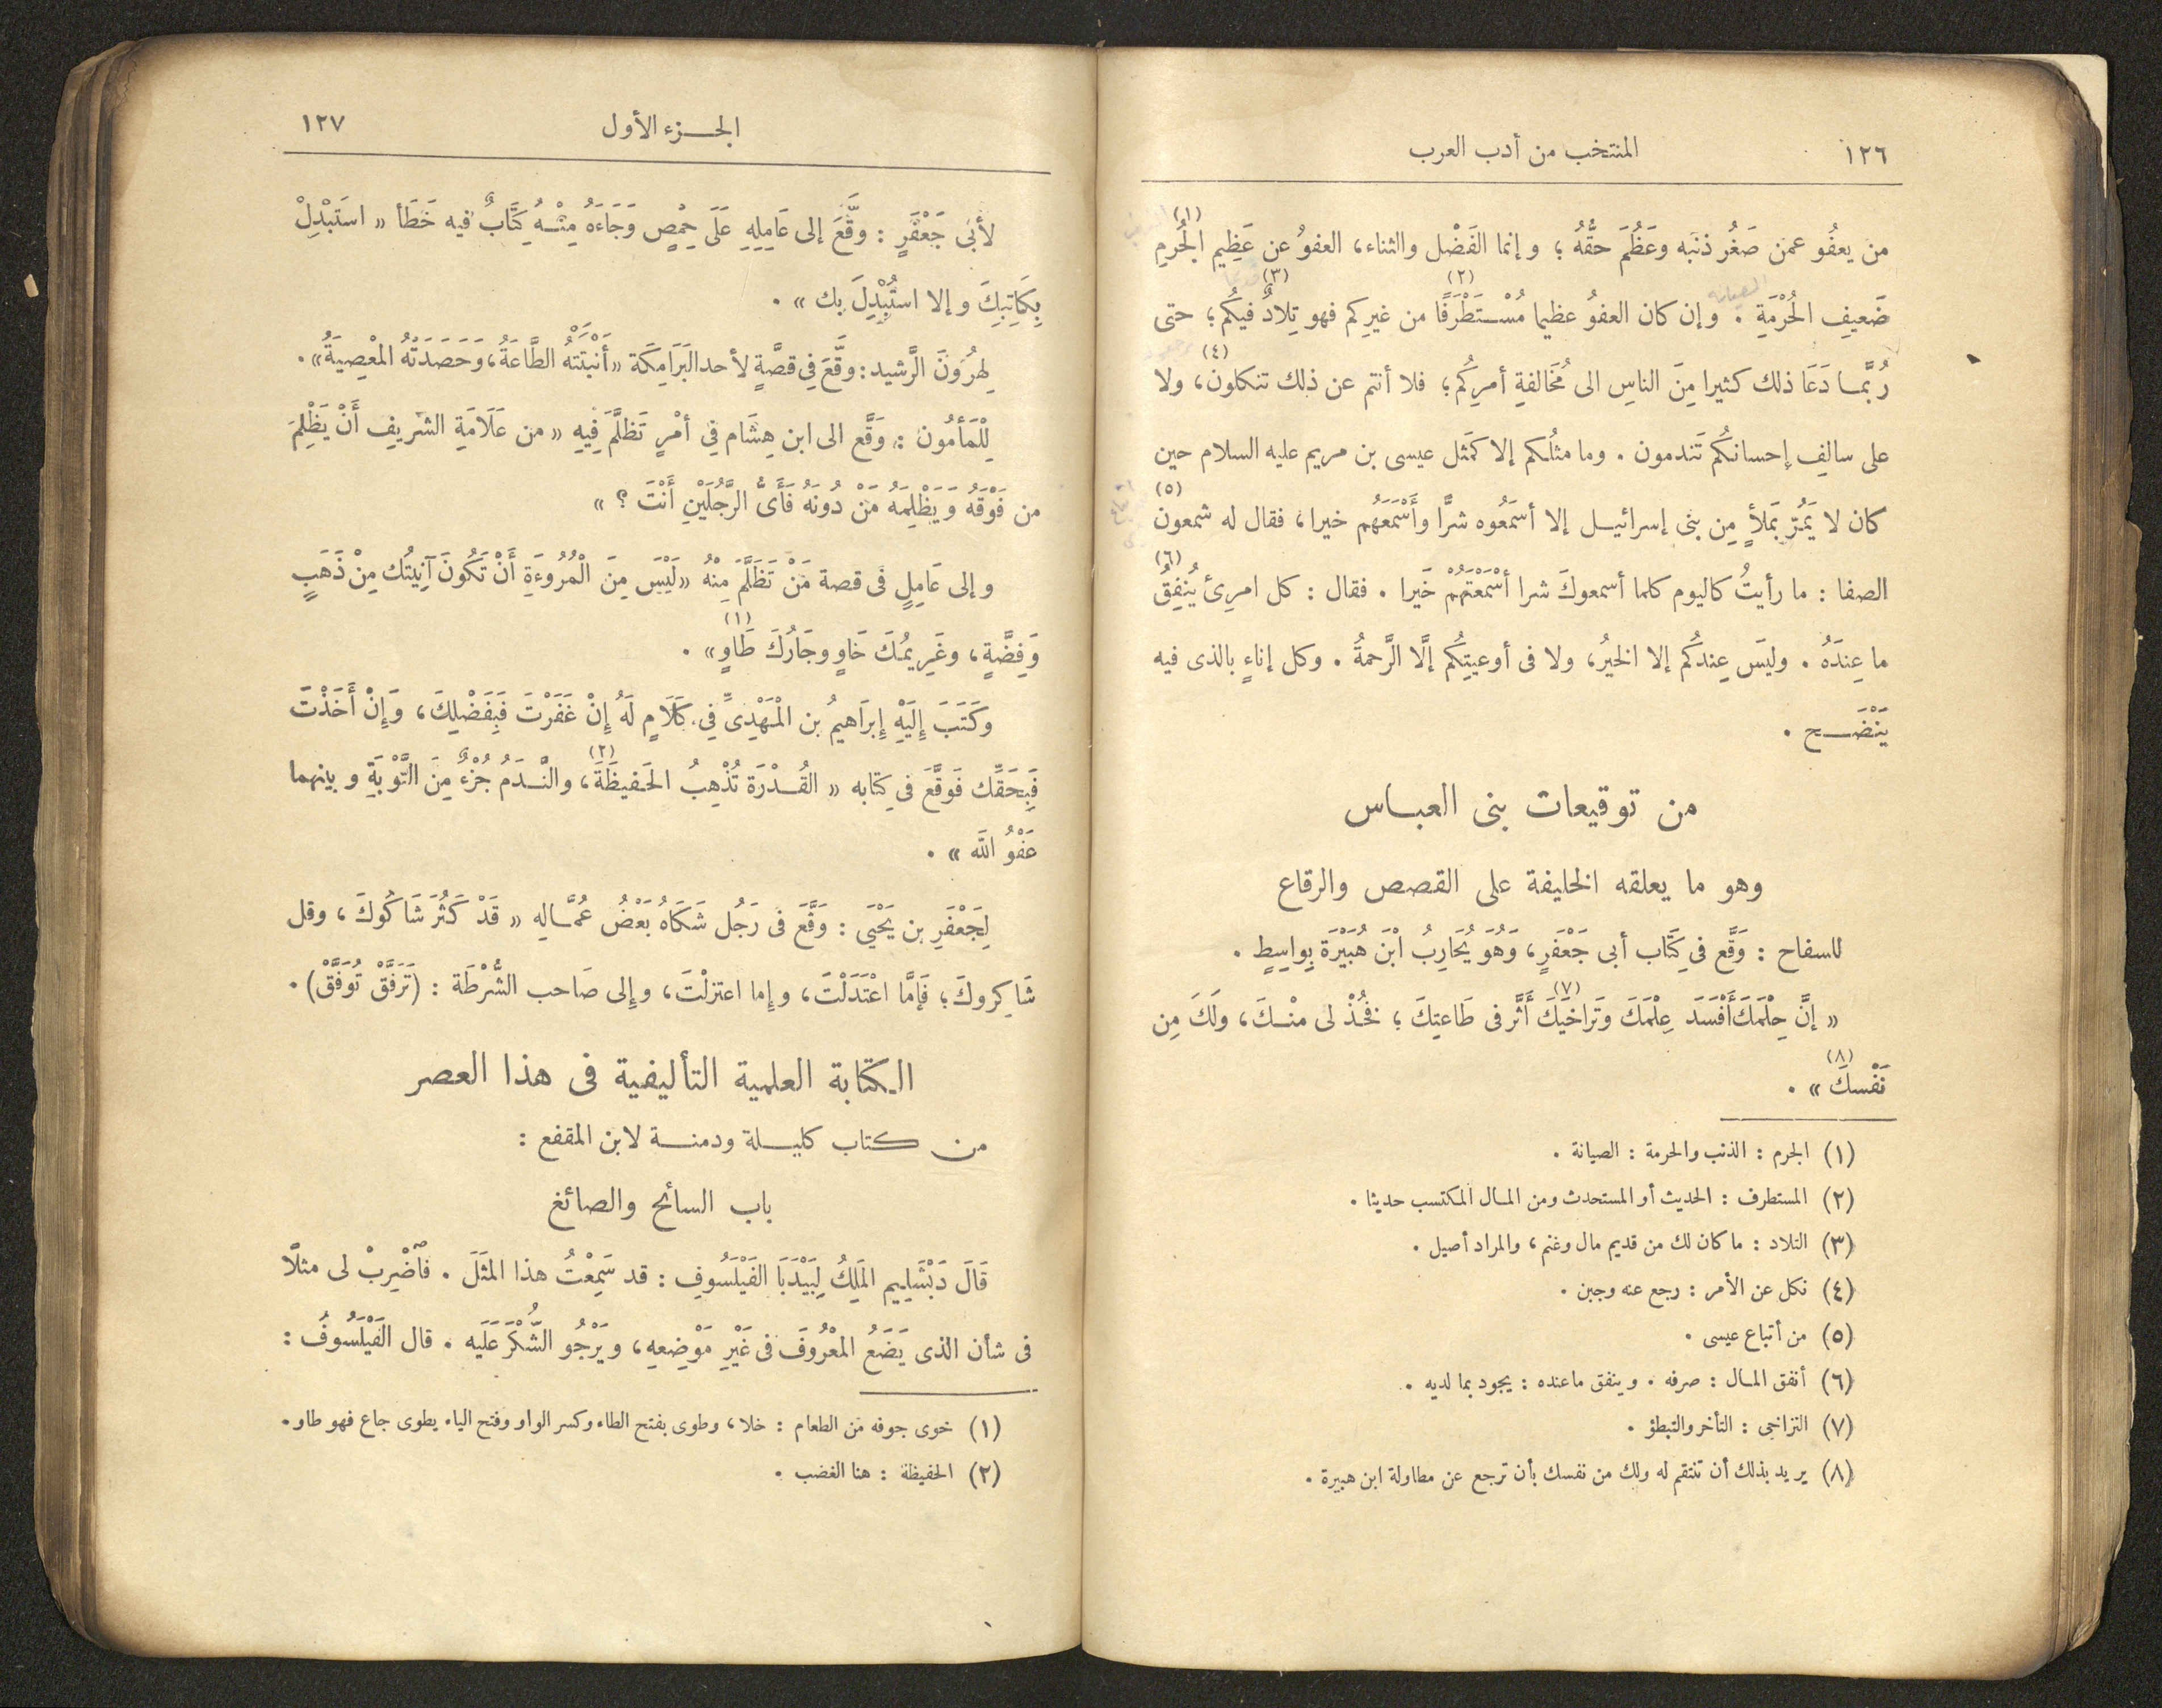 ١٢٦
المنتخب من أدب العرب
من يعفُو عمن صَغُر ذنبَه وعَظُمَ حقُّهُ ؛ وإنما الفَضْل والثناء، العفوُ عن عَظِيم الجُرمِ (١)
ضَعيفِ الحُرْمَةِ . وإن كان العفوُ عظيما مُسْتَطْرَفًا (٢) من غيرِكم فهو تِلادٌ (٣) فيكُم؛ حتى
رُبَّما دَعَا ذلك كثيرا مِنَ الناسِ الى مُخَالفةِ أمرِكُم؛ فلا أنتم عن ذلك تنكلون (٤)، ولا
على سالفِ إحسانكُم تَندمون . وما مثلُكم إلا كمَثل عيسى بن مريم عليه السلام حين
كان لا يَمُرّ بمَلأٍ مِن بنى إسرائيل إلا أسمَعُوه شرًّا وأَسْمَعَهُم خيرا، فقال له شمعون (٥)
الصفا : ما رأيتُ كاليوم كلما أسمعوكَ شرا أسْمَعْتَهُمْ خَيرا . فقال : كل امرِئ يُنفِقُ (٦)
ما عِندَهُ . وليسَ عِندكُم إلا الخيرُ، ولا فى أوعيتِكُم إلَّا الرَّحمةُ . وكل إناءٍ بالذى فيه
يَنْضَح .
من توقيعات بنى العباس
وهو ما يعلقه الخليفة على القصص والرقاع
للسفاح : وَقَّع فى كِتَاب أبى جَعْفَرٍ، وَهُوَ يُحَارِبُ ابْنَ هُبَيْرَة بِواسِطٍ .
« إنَّ حِلْمَكَ أَفْسَدَ عِلْمَكَ وَتَراخيَكَ (٧) أَثَّر فى طَاعتِكَ ؛ فخُذْ لى منْكَ، ولَكَ مِن
نَفْسكَ (٨) » .
(١) الجرم : الذنب والحرمة : الصيانة .
(٢) المستطرف : الحديث أو المستحدث ومن المال المكتسب حديثا .
(٣) التلاد : ما كان لك من قديم مال وغنم، والمراد أصيل .
(٤) نكل عن الأمر : رجع عنه وجبن .
(٥) من أتباع عيسى .
(٦) أنفق المال : صرفه . وينفق ما عنده : يجود بما لديه .
(٧) التراخى : التأخر والتبطؤ .
(٨) يريد بذلك أن تنتقم له ولك من نفسك بأن ترجع عن مطاولة ابن هبيرة .
الجزء الأول
١٢٧
لأبى جَعْفَرٍ : وقَّعَ إلى عَامِلِهِ عَلَى حِمْصٍ وَجَاءَهُ مِنْهُ كِتَابٌ فيه خَطَأ « استَبْدِلْ
بِكَاتِبِكَ وإلا استُبْدِلَ بك » .
لِهرُونَ الرَّشيد : وقَّعَ فى قصَّةٍ لأحد البَرَامِكَة « أَنْبَتَتْهُ الطَّاعَةُ، وَحَصَدَتْهُ المْعِصيَةُ» .
لِلْمَأمُون : وَقَّع الى ابن هِشَام فِى أمْرٍ تَظلَّمَ فِيهِ « من عَلَامَةِ الشريفِ أَنْ يَظْلِمَ
من فَوْقَهُ وَيَظْلِمَهُ مَنْ دُونَهُ فَأَىُّ الرَّجُلَيْنِ أَنْتَ ؟ »
وإلى عَامِلٍ فى قصة مَنْ تَظَلَّمَ مِنْهُ « لَيْسَ مِنَ الْمُرُوءَةِ أَنْ تَكُونَ آنِيتُك مِنْ ذَهَبٍ
وَفِضَّةٍ، وغَرِيمُكَ خَاوٍ وجَارُكَ طَاوٍ (١) » .
وكَتَبَ إلَيْهِ إبرَاهيمُ بن الْمَهْدِىِّ فِى كَلَامٍ لَهُ إنْ غَفَرْتَ فَبِفَضْلِكَ، وَإِنْ أَخَذْتَ
فَبِحَقِّك فَوقَّعَ فى كِتابه « القُدْرَة تُذْهِبُ الحَفيظَةَ (٢)، والنَّدَمُ جُزْءٌ مِنَ التَّوْبَةِ وبينهما
عَفْوُ اللّه » .
لِجَعْفَرِ بن يَحْيَى : وَقَّعَ فى رَجُل شَكَاهُ بَعْضُ عُمَّاله « قَدْ كَثُرَ شَاكُوكَ، وقل
شَاكِروكَ؛ فَإمَّا اعْتَدَلْتَ، وإما اعتزلْتَ، وإلى صَاحب الشُّرْطَة : (تَرَفَّقْ تُوَفَّقْ) .
الكتابة العلمية التأليفية فى هذا العصر
من كتاب كليلة ودمنة لابن المقفع :
باب السائح والصائغ
قَالَ دَبْشَلِيم المَلِكُ لِبَيْدَبَا الفَيْلَسُوفِ : قد سَمِعْتُ هذا المثَلَ . فٱضْرِبْ لى مثلًا
فى شأن الذى يَضَعُ المعْرُوفَ فى غَيْرِ مَوْضِعهِ، ويَرْجُو الشُّكْرَ عَلَيه . قال الفَيْلَسُوفُ :
(١) خوى جوفه من الطعام : خلا، وطوى بفتح الطاء وكسر الواو وفتح الياء يطوى جاع فهو طاو .
(٢) الحفيظة : هنا الغضب .